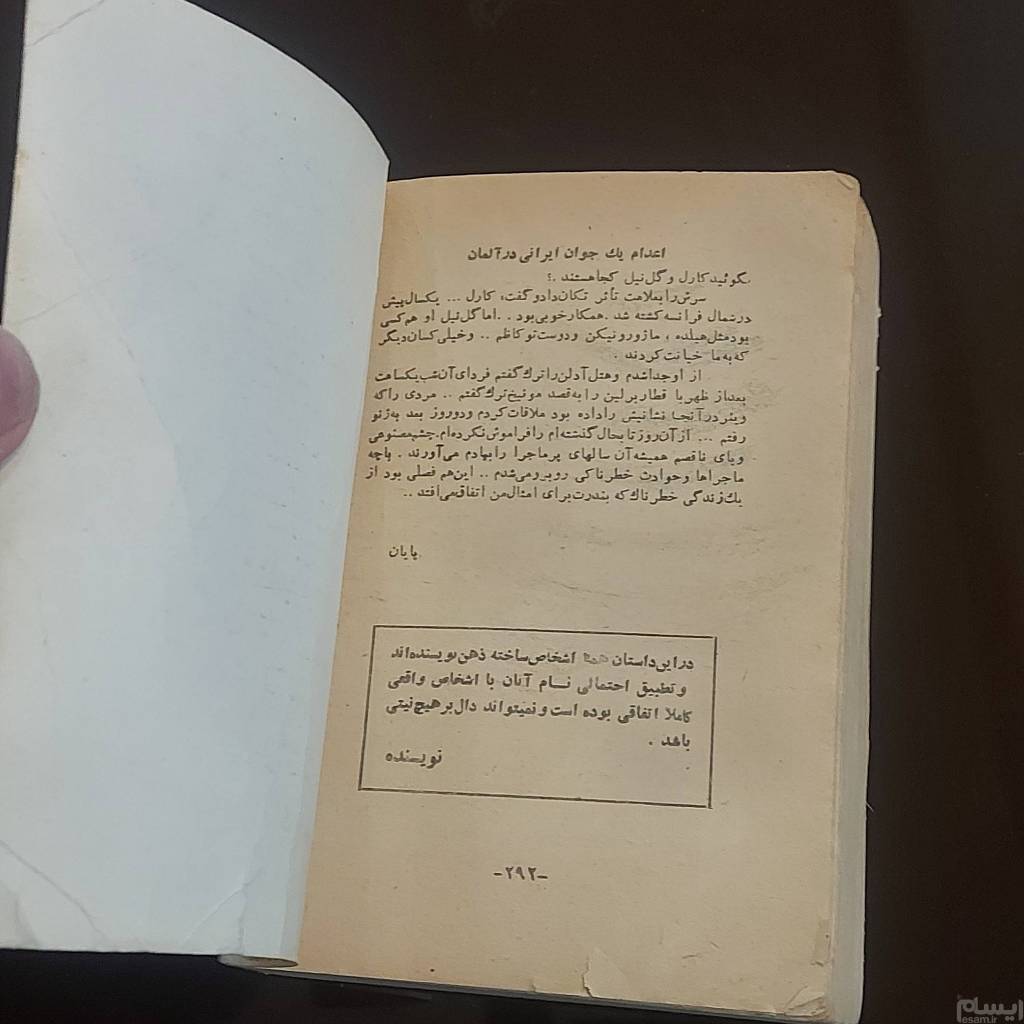 اعدام یك جوان ایرانی در آلمان
بگوئید کارل و گل‌نیل کجا هستند .؟
سرش را بعلامت تأثر تکان داد و گفت، کارل ... یکسال پیش
در شمال فرانسه کشته شد . همکار خوبی بود . . اما گل‌نیل او هم کسی
بود مثل هیلده ، ماژور ونیکن و دوست تو کاظم .. و خیلی کسان دیگر
که به ما خیانت کردند .
از او جدا شدم و هتل آدلن را ترك گفتم فردای آن شب یکساعت
بعد از ظهر با قطار برلین را به قصد مونیخ ترك گفتم .. مردی را که
ویتر در آنجا نشانیش را داده بود ملاقات کردم و دو روز بعد به ژنو
رفتم ... از آن روز تا بحال گذشته‌ام را فراموش نکرده‌ام. چشم مصنوعی
و پای ناقصم همیشه آن سالهای پر ماجرا را بیادم می‌آورند . با چه
ماجراها و حوادث خطرناکی روبرو می‌شدم .. این هم فصلی بود از
یك زندگی خطرناك که بندرت برای امثال من اتفاق می‌افتد ..
پایان
در این داستان همه اشخاص ساخته ذهن نویسنده‌اند
و تطبیق احتمالی نـام آنان با اشخاص واقعی
کاملا اتفاقی بوده است و نمیتواند دال بر هیچ نیتی
باشد .
نویسنده
-۲۹۲-
ایسام
esam.ir